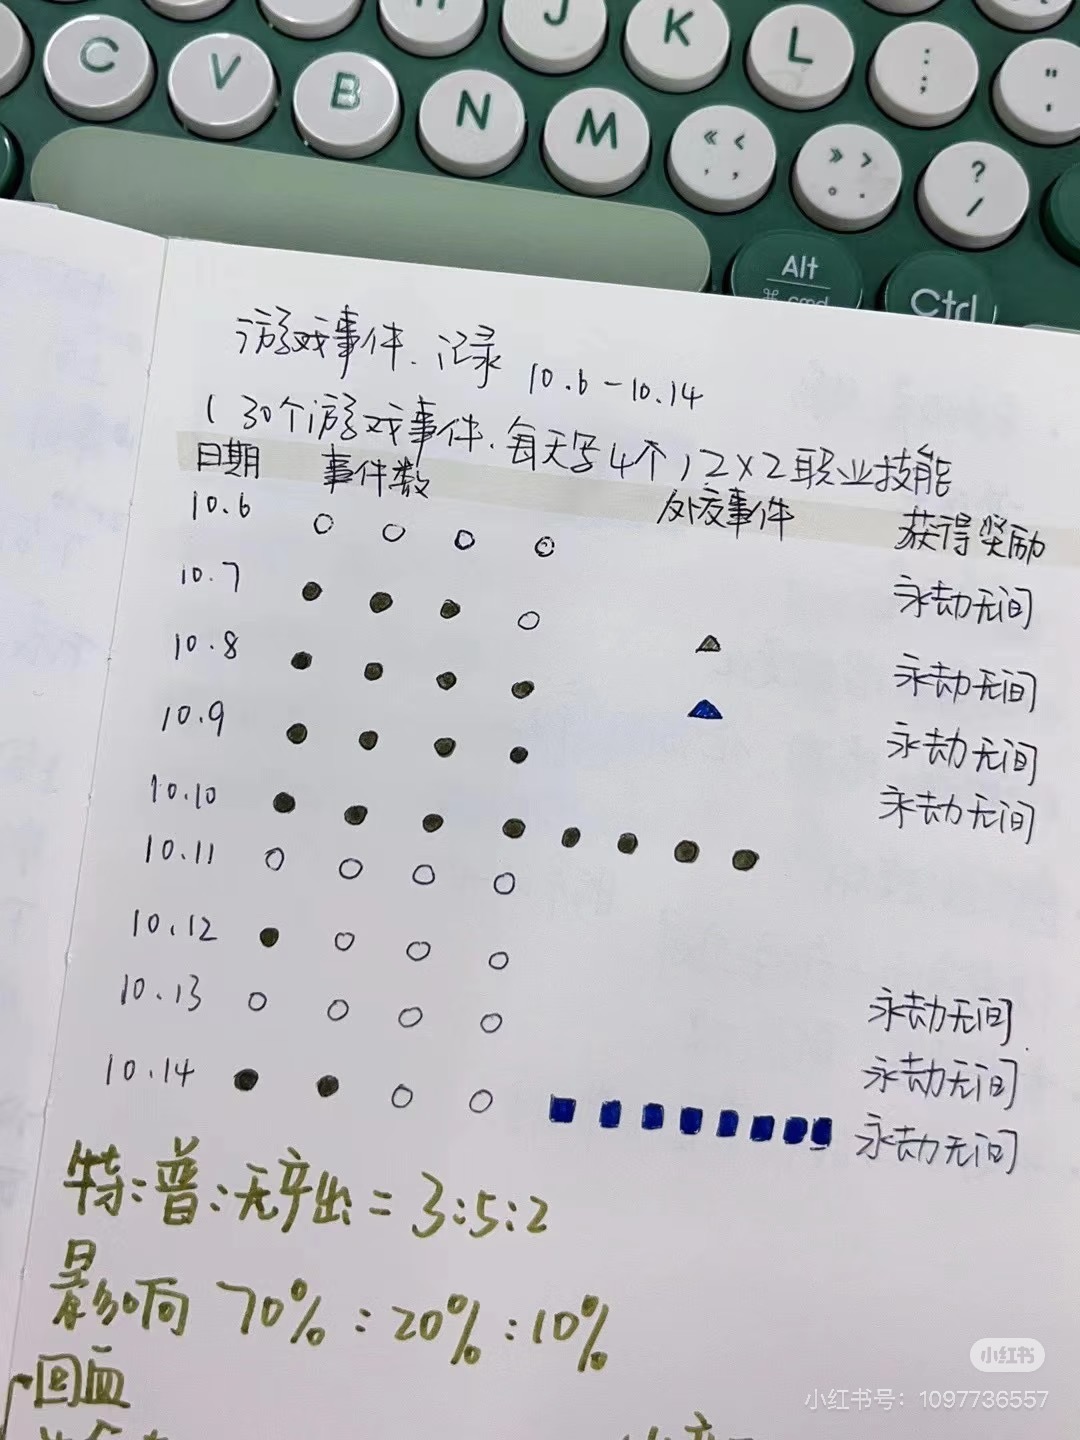 H J K L : ;
C V B N M « < , » > . ? /
" '
Alt
⌘ cmd
Ctrl
游戏事件.记录 10.6-10.14
(30个游戏事件.每天写4个,2×2职业技能
日期 事件数 反应事件 获得奖励
10.6 永劫无间
10.7 永劫无间
10.8 永劫无间
10.9 永劫无间
10.10
10.11
10.12 永劫无间
10.13 永劫无间
10.14 永劫无间
特:普:无产出=3:5:2
影响 70%:20%:10%
回血
小红书
小红书号：1097736557